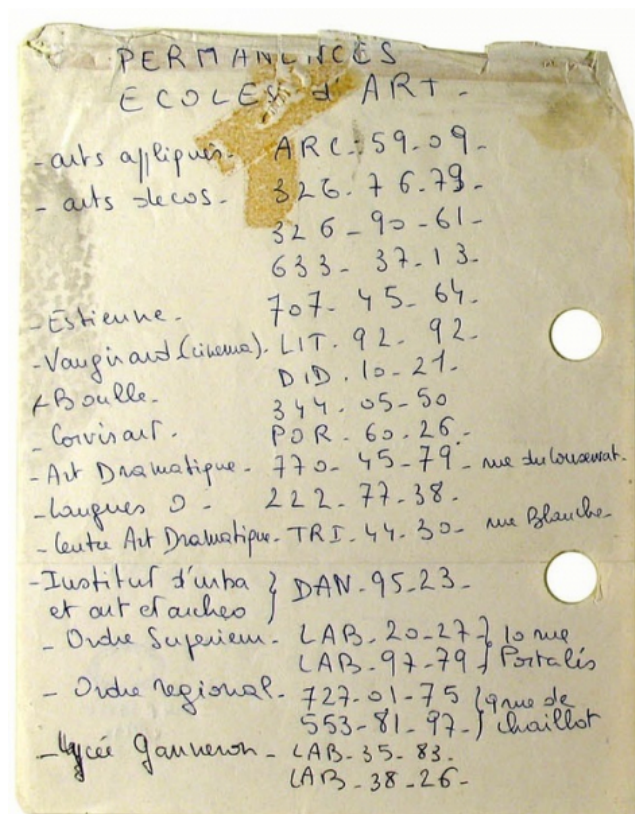 PERMANENCES
ECOLES d'ART -
- arts appliqués - ARC. 59.09 -
- arts decos - 326.76.79 -
326 - 90 - 61 -
633 - 37.13 -
- Estienne - 707. 45. 64 -
- Vaugirard (cinema). LIT. 92. 92.
- Boulle - DID. 10-21.
344. 05-50
- Corvisart. POR. 60.26 -
- Art Dramatique - 770 - 45-79 - rue du Conservat.
- Langues O - 222 - 77-38.
- Centre Art Dramatique - TRI. 44. 30 - rue Blanche -
- Institut d'urba } DAN - 95.23 -
et art et archeo
- Ordre Superieur - LAB. 20-27 } 10 rue
LAB - 97-79 } Portalis
- Ordre regional - 727-01-75 { 9 rue de
553-81.97 - } chaillot
- lycée Ganneron - LAB - 35 - 83.
LAB - 38 - 26 -